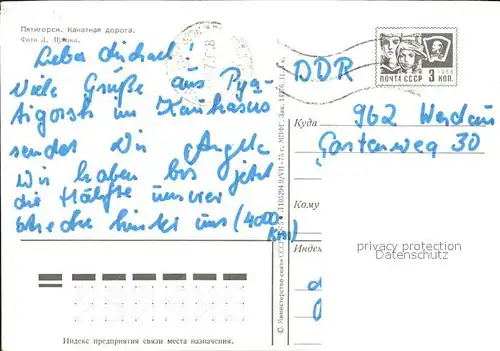 Пятигорск. Канатная дорога.
Фото Д.
Lieber Michael!
Viele Grüße aus Pya-
tigorsk im Kaukasus
sendet Dir Angela
Wir haben bis jetzt
die Hälfte unserer
Strecke hinter uns (4000
Km)
DDR
ПОЧТА СССР 3 КОП.
Куда 962 Werdau
Gartenweg 30
Кому
Индекс
privacy protection
Datenschutz
© Министерство связи СССР
Индекс предприятия связи места назначения.